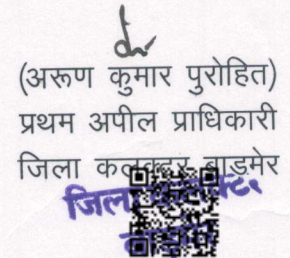 (अरूण कुमार पुरोहित)
प्रथम अपील प्राधिकारी
जिला कलक्टर बाडमेर
जिला